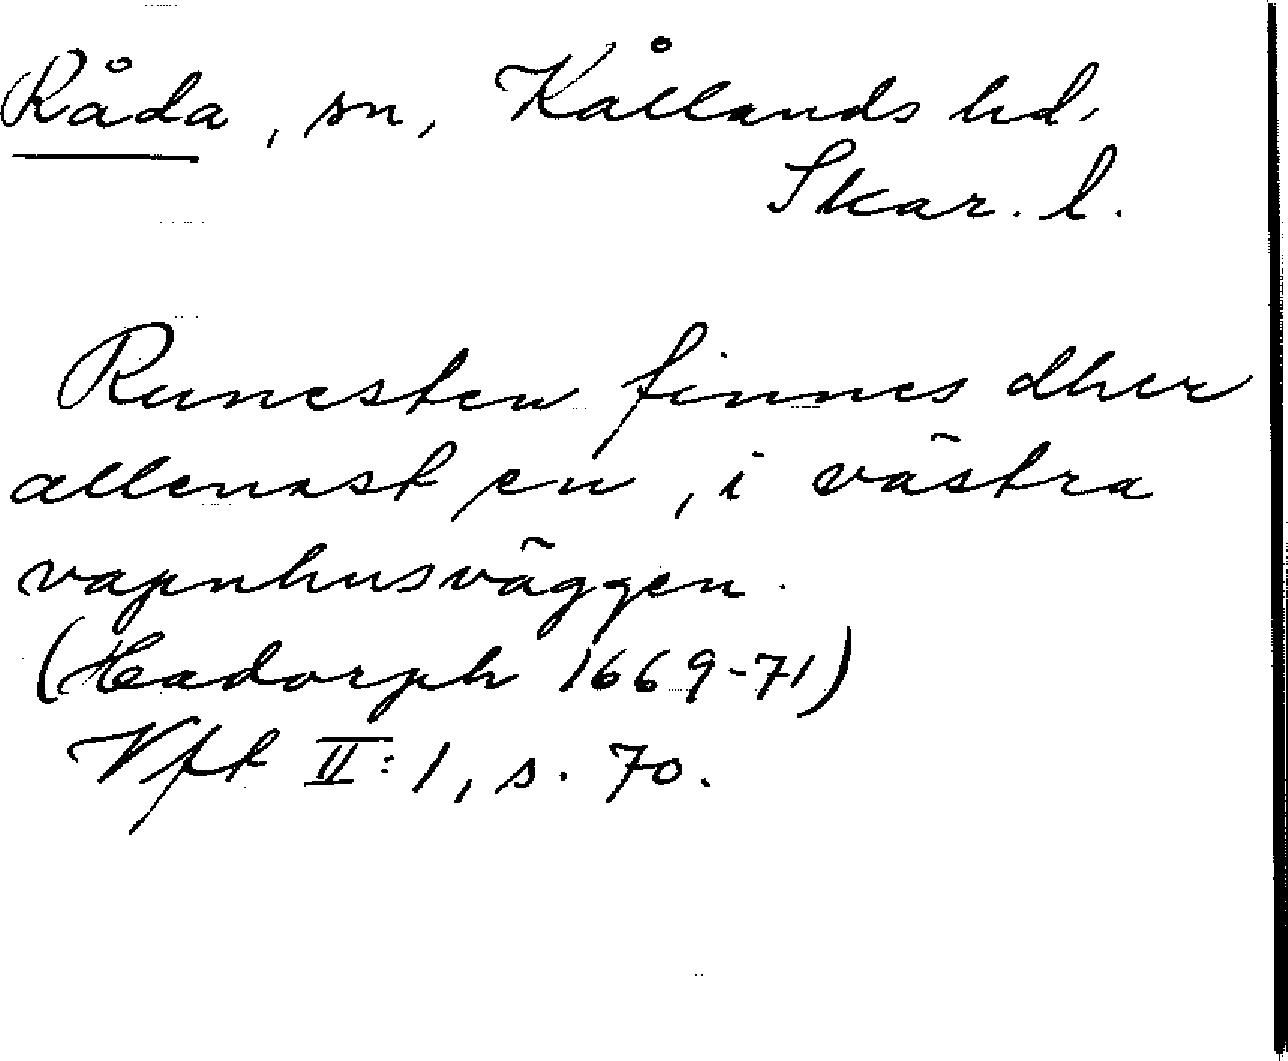 Råda, sn, Kållands hd.
Skar. l.
Runesten finnes dher
allenast en, i västra
vapnhusväggen.
(Hadorph 1669-71)
Vft II:1, s. 70.